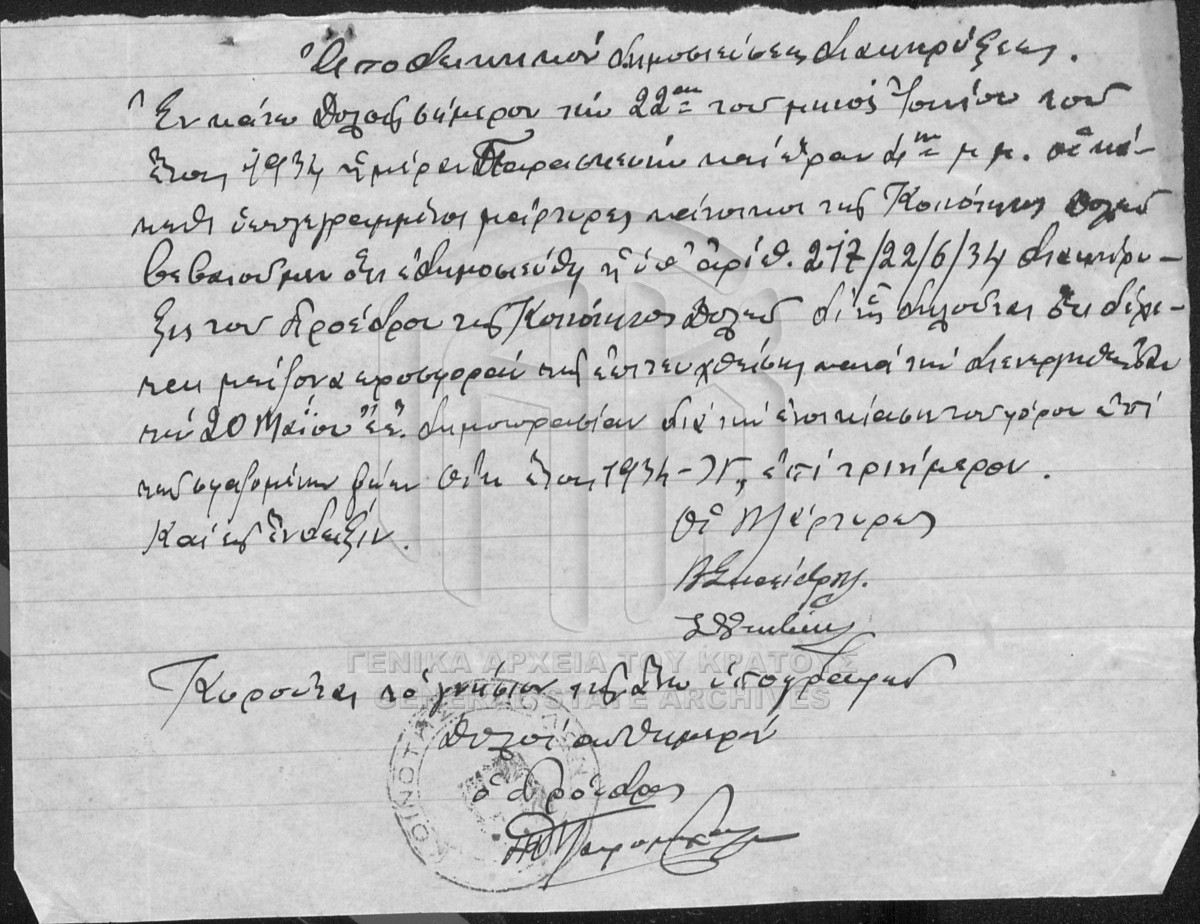 Ἀποδεικτικὸν δημοσιεύσεως διακηρύξεως.
Ἐν κάτω σήμερον τὴν 22αν τοῦ μηνὸς Ἰουνίου τοῦ
ἔτους 1934 ἡμέραν Παρασκευὴν καὶ ὥραν μ.μ. οἱ κά-
τωθι ὑπογεγραμμένοι μάρτυρες κάτοικοι τῆς Κοινότητος
βεβαιοῦμεν ὅτι ἐδημοσιεύθη ἡ ὑπ' ἀριθ. 217/22/6/34 διακήρυ-
ξις τοῦ Προέδρου τῆς Κοινότητος δι' ἧς δηλοῦται ὅτι δέχε-
ται μείζονα προσφορὰν τῆς ἐπιτευχθείσης κατὰ τὴν διενεργηθεῖσαν
τὴν 20 Μαΐου ἐ.ἔ. δημοπρασίαν διὰ τὴν ἐνοικίασιν τοῦ φόρου ἐπὶ
τῶν σφαζομένων ζώων ἔτους 1934-35, ἐπὶ τριήμερον.
Καὶ εἰς ἔνδειξιν.
Οἱ Μάρτυρες
Κυροῦται τὸ γνήσιον τῆς ἄνω ὑπογραφῶν
αὐθημερόν
ὁ Πρόεδρος
ΚΟΙΝΟΤΗΣ
ΓΕΝΙΚΑ ΑΡΧΕΙΑ ΤΟΥ ΚΡΑΤΟΥΣ
GENERAL STATE ARCHIVES